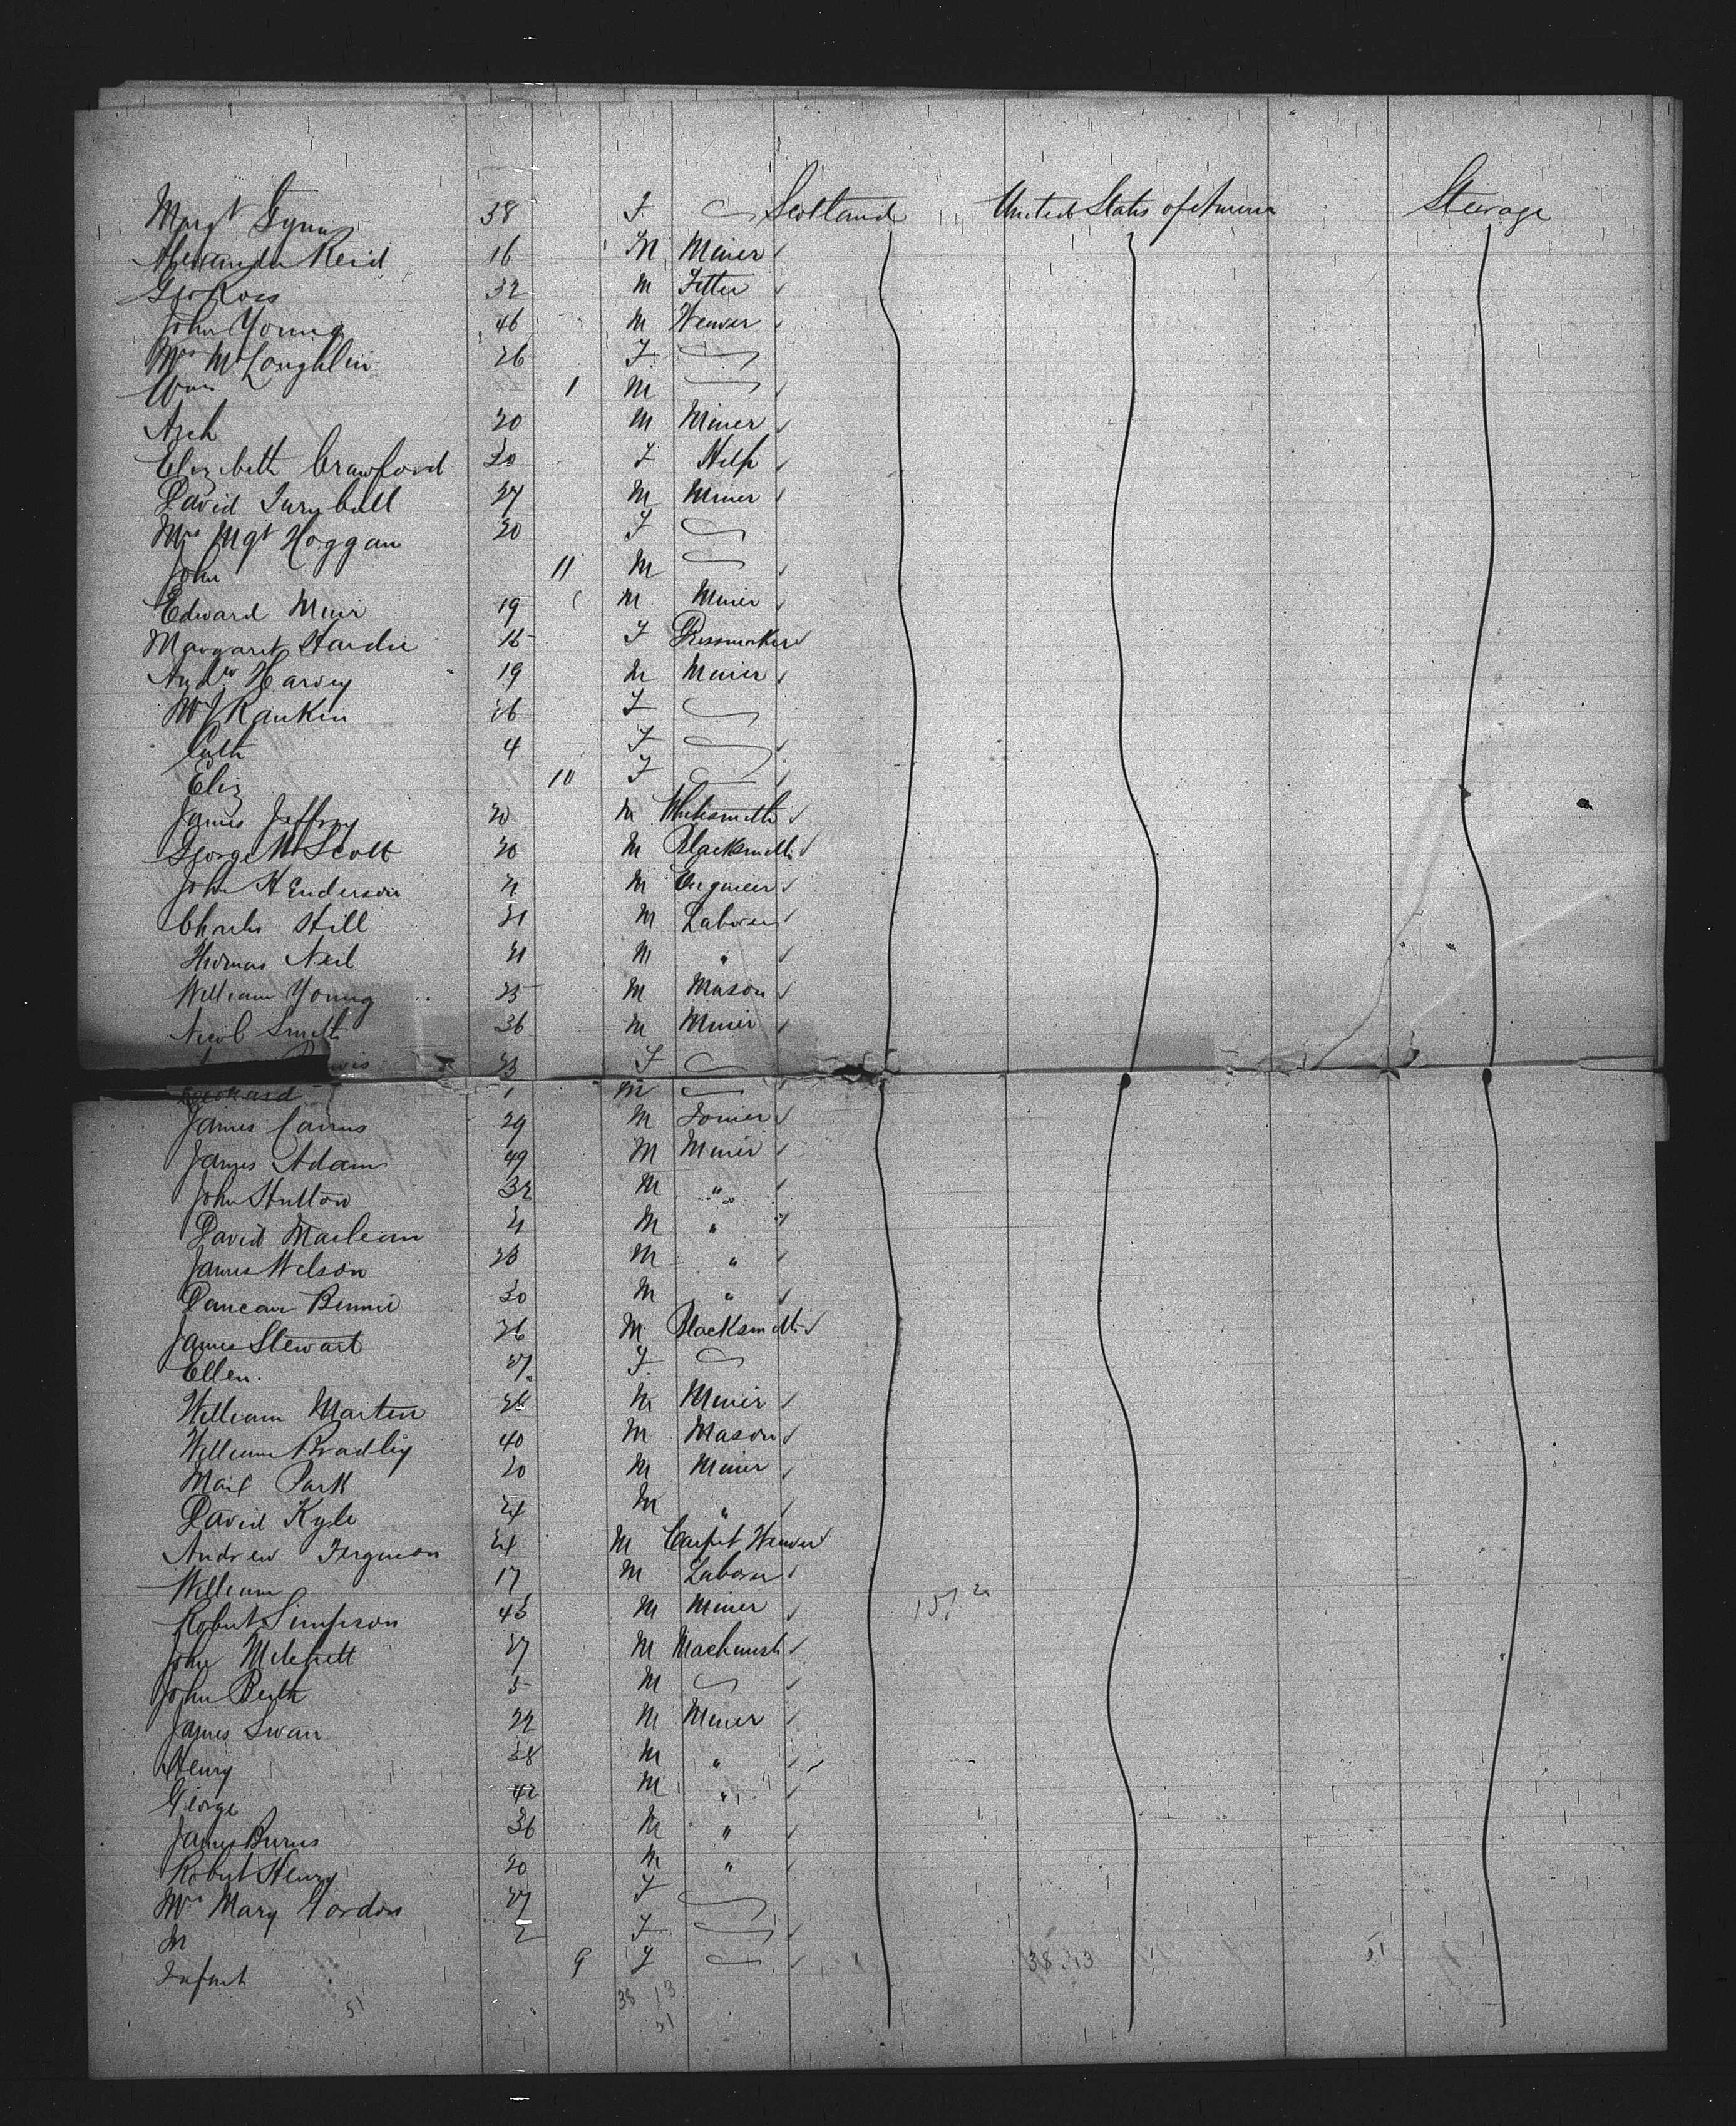 Margt Gynn 38 F Scotland United States of America Steerage
Alexander Reid 16 M Miner
Geo Ross 32 M Fitter
John Young 46 M Weaver
Mrs McLoughlin 26 F
Wm 1 M
Arch 20 M Miner
Elizabeth Crawford 20 F Help
David Turnbull 27 M Miner
Mrs Mgt Hoggan 20 F
John 11 M
Edward Muir 19 M Miner
Margaret Hardie 18 F Dressmaker
Andw Harvey 19 M Miner
Rankin 26 F
Cath 4 F
Eliz 10 F
James Jeffrey 20 M Whitesmith
George M Scott 20 M Blacksmith
John Henderson 21 M Engineer
Charles Still 21 M Laborer
Thomas Neil 21 M "
William Young 25 M Mason
Nicol Smith 36 M Miner
23 F
1 M
James Cairns 29 M Joiner
James Adam 49 M Miner
John Hutton 32 M "
David Maclean 21 M "
James Wilson 23 M "
Duncan Binnie 30 M "
James Stewart 26 M Blacksmith
Ellen. 27 F
William Martin M Miner
William Bradley 40 M Mason
Park 20 M Miner
David Kyle 24 M "
Andrew Ferguson 24 M Carpet Weaver
William 17 M Laborer
Robert Simpson 45 M Miner
John Mitchell 27 M Machinist
John Beith 5 M
James Swan 22 M Miner
Henry 38 M "
George 42 M "
James Burns 36 M "
Robert Henry 20 M "
Mrs Mary Gordon 27 F
M 2 F
Infant 9 F 38 13 51
51 38 13
51